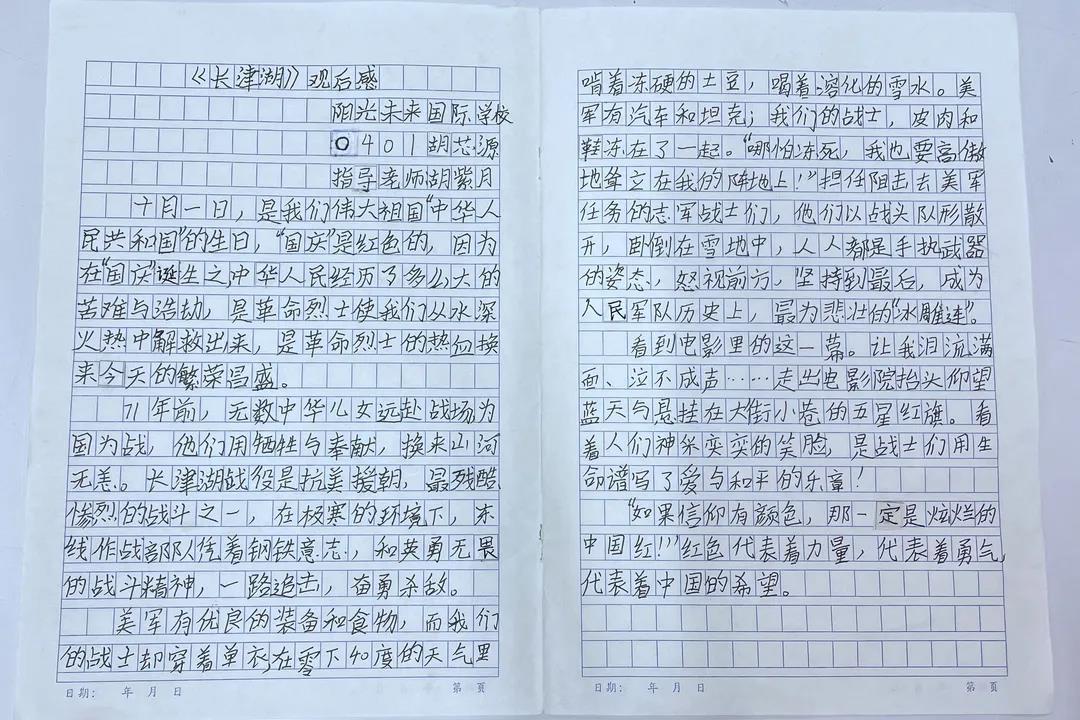 《长津湖》观后感
阳光未来国际学校
0401胡芯源
指导老师湖紫月
十月一日，是我们伟大祖国“中华人
民共和国”的生日，“国庆”是红色的，因为
在“国庆”诞生之中华人民经历了多么大的
苦难与浩劫，是革命烈士使我们从水深
火热中解救出来，是革命烈士的热血换
来今天的繁荣昌盛。
71年前，无数中华儿女远赴战场为
国为战，他们用牺牲与奉献，换来山河
无恙。长津湖战役是抗美援朝，最残酷
惨烈的战斗之一，在极寒的环境下，东
线作战部队凭着钢铁意志，和英勇无畏
的战斗精神，一路追击，奋勇杀敌。
美军有优良的装备和食物，而我们
的战士却穿着单衣在零下40度的天气里
日期： 年 月 日 第 页
啃着冻硬的土豆，喝着溶化的雪水。美
军有汽车和坦克；我们的战士，皮肉和
鞋冻在了一起。“哪怕冻死，我也要高傲
地耸立在我的阵地上！”担任阻击去美军
任务的志军战士们，他们以战头队形散
开，卧倒在雪地中，人人都是手执武器
的姿态，怒视前方，坚持到最后，成为
人民军队历史上，最为悲壮的“冰雕连”。
看到电影里的这一幕。让我泪流满
面、泣不成声……走出电影院抬头仰望
蓝天与悬挂在大街小巷的五星红旗。看
着人们神采奕奕的笑脸，是战士们用生
命谱写了爱与和平的乐章！
“如果信仰有颜色，那一定是炫烂的
中国红！”红色代表着力量，代表着勇气，
代表着中国的希望。
日期： 年 月 日 第 页